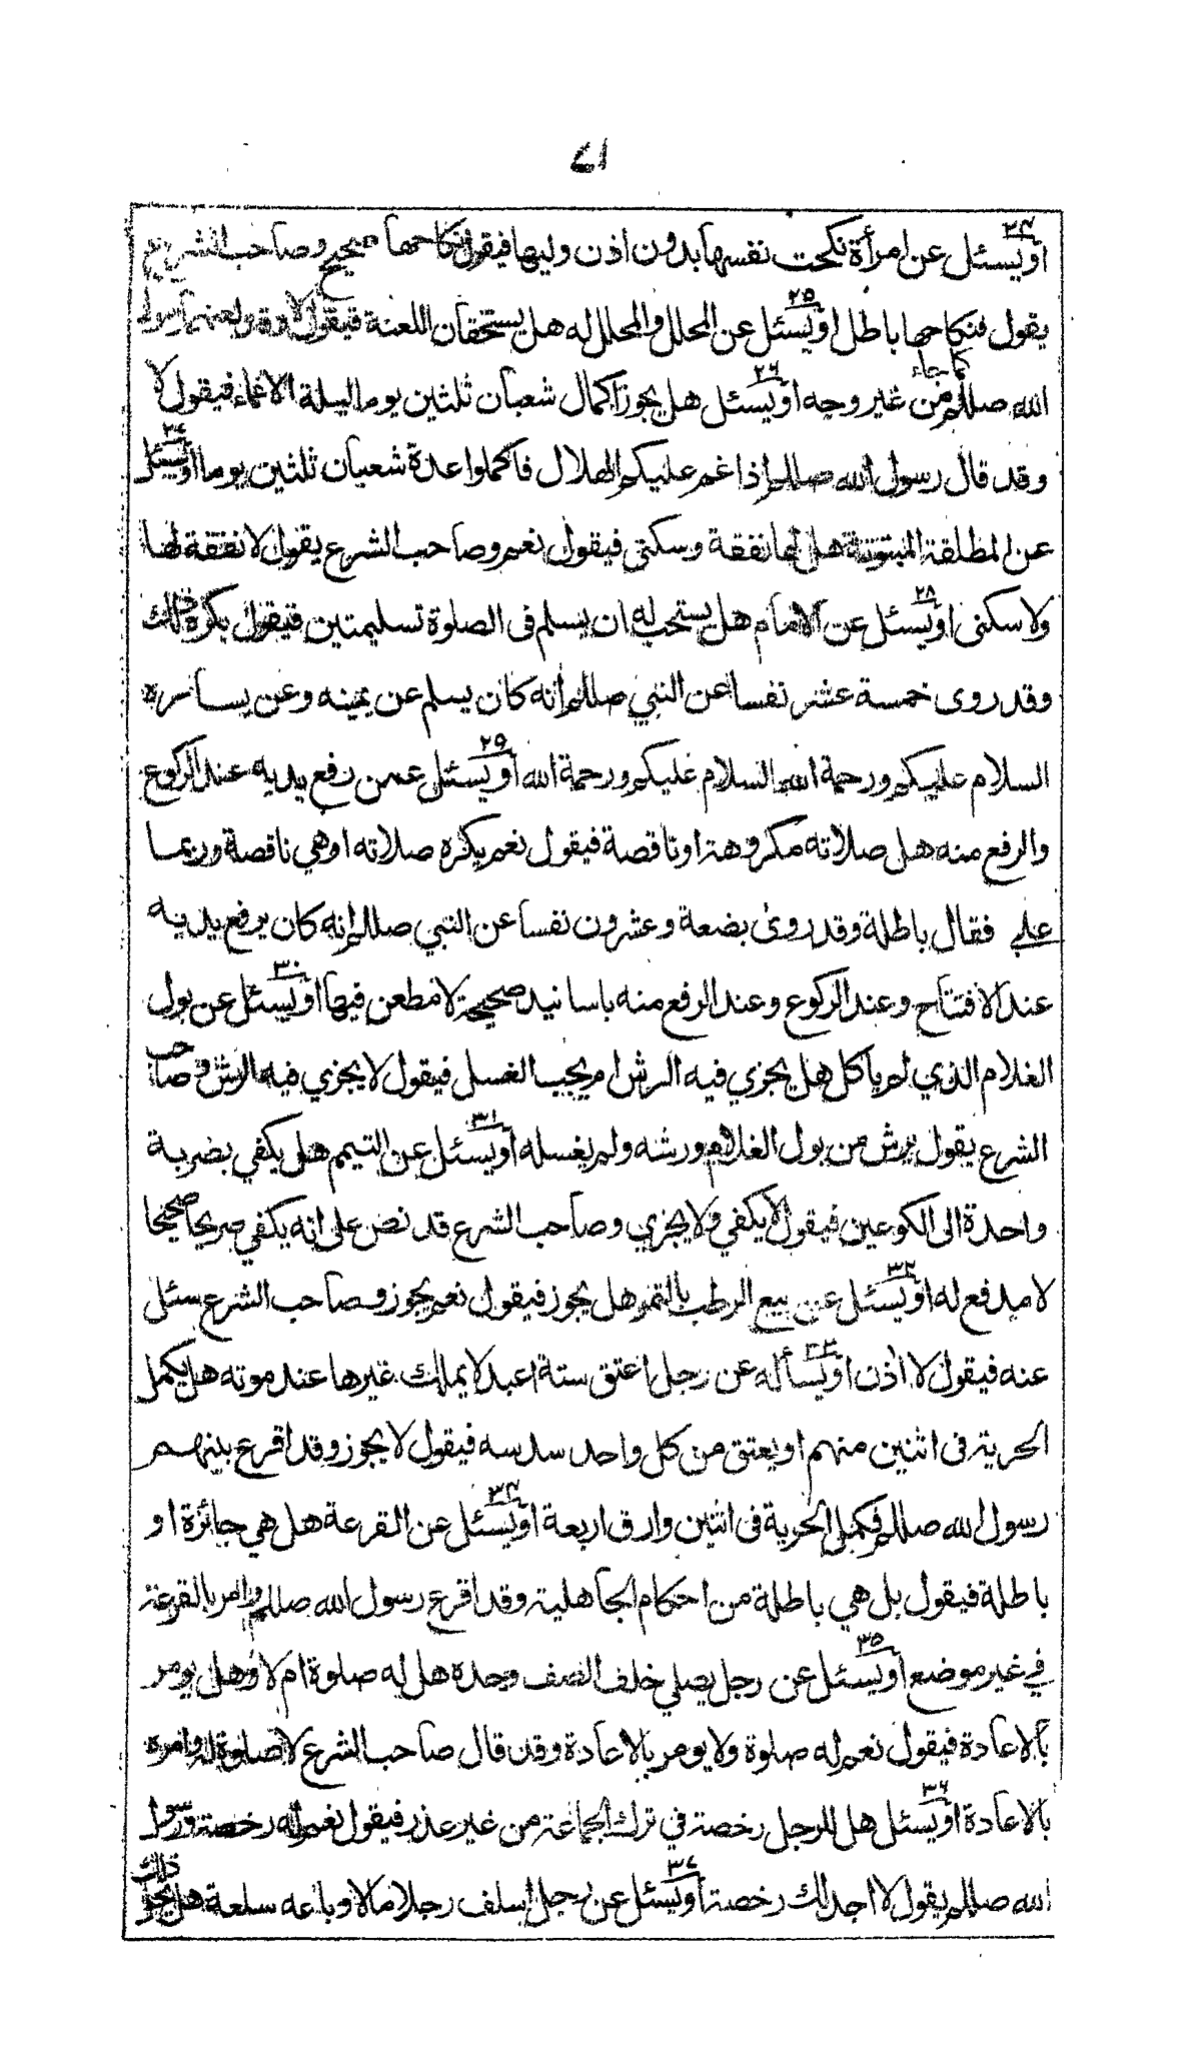 ٧١
٢٤ او يسئل عن امرأة نكحت نفسها بدون اذن وليها فيقول نكاحها صحيح وصاحب الشرع
يقول فنكاحها باطل ٢٥ او يسئل عن المحلل والمحلل له هل يستحقان اللعنة فيقول لا وقد لعنهما رسول
الله صللم كما جاء من غير وجه ٢٦ او يسئل هل يجوز اكمال شعبان ثلثين يوما ليلة الاغماء فيقول لا
وقد قال رسول الله صللم اذا غم عليكم الهلال فاكملوا عدة شعبان ثلثين يوما ٢٧ او يسئل
عن المطلقة المبتوتة هل لها نفقة وسكنى فيقول نعم وصاحب الشرع يقول لا نفقة لها
ولا سكنى ٢٨ او يسئل عن الامام هل يستحب له ان يسلم فى الصلوة تسليمتين فيقول يكره ذلك
وقد روى خمسة عشر نفسا عن النبي صللم انه كان يسلم عن يمينه وعن يساره
السلام عليكم ورحمة الله السلام عليكم ورحمة الله ٢٩ او يسئل عمن رفع يديه عند الركوع
والرفع منه هل صلاته مكروهة او ناقصة فيقول نعم يكره صلاته او هي ناقصة وربما
على فقال باطلة وقد روى بضعة وعشرون نفسا عن النبي صللم انه كان يرفع يديه
عند الافتتاح وعند الركوع وعند الرفع منه باسانيد صحيحة لا مطعن فيها ٣٠ او يسئل عن بول
الغلام الذي لم ياكل هل يجزي فيه الرش ام يجب الغسل فيقول لا يجزي فيه الرش وصاحب
الشرع يقول يرش من بول الغلام ورشه ولم يغسله ٣١ او يسئل عن التيمم هل يكفي بضربة
واحدة الى الكوعين فيقول لا يكفي ولا يجزي وصاحب الشرع قد نص على انه يكفي صريحا صحيحا
لا مدفع له ٣٢ او يسئل عن بيع الرطب بالتمر هل يجوز فيقول نعم يجوز وصاحب الشرع سئل
عنه فيقول لا اذن ٣٣ او يسأله عن رجل اعتق ستة اعبد لا يملك غيرها عند موته هل يكمل
الحرية فى اثنين منهم او يعتق من كل واحد سدسه فيقول لا يجوز وقد اقرع بينهم
رسول الله صللم فكمل الحرية فى اثنين وارق اربعة ٣٤ او يسئل عن القرعة هل هي جائزة او
باطلة فيقول بل هي باطلة من احكام الجاهلية وقد اقرع رسول الله صللم وامر بالقرعة
في غير موضع ٣٥ او يسئل عن رجل يصلي خلف الصف وحده هل له صلوة ام لا وهل يومر
بالاعادة فيقول نعم له صلوة ولا يومر بالاعادة وقد قال صاحب الشرع لا صلوة له وامره
بالاعادة ٣٦ او يسئل هل للرجل رخصة في ترك الجماعة من غير عذر فيقول نعم له رخصة ورسول
الله صللم يقول لا اجد لك رخصة ٣٧ او يسئل عن رجل اسلف رجلا مالا وباعه سلعة هل يجوز ذلك